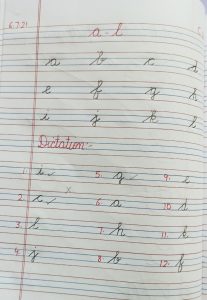 6.7.21
a - l
a b c d
e f g h
i j k l
Dictation:-
1. i ✓ 5. g ✓ 9. c
2. c ✓ 6. a 10. d
3. l 7. h 11. k
4. j 8. b 12. f